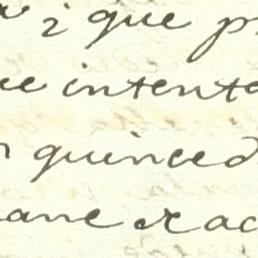 que p
ue intent
quinced
ane exac